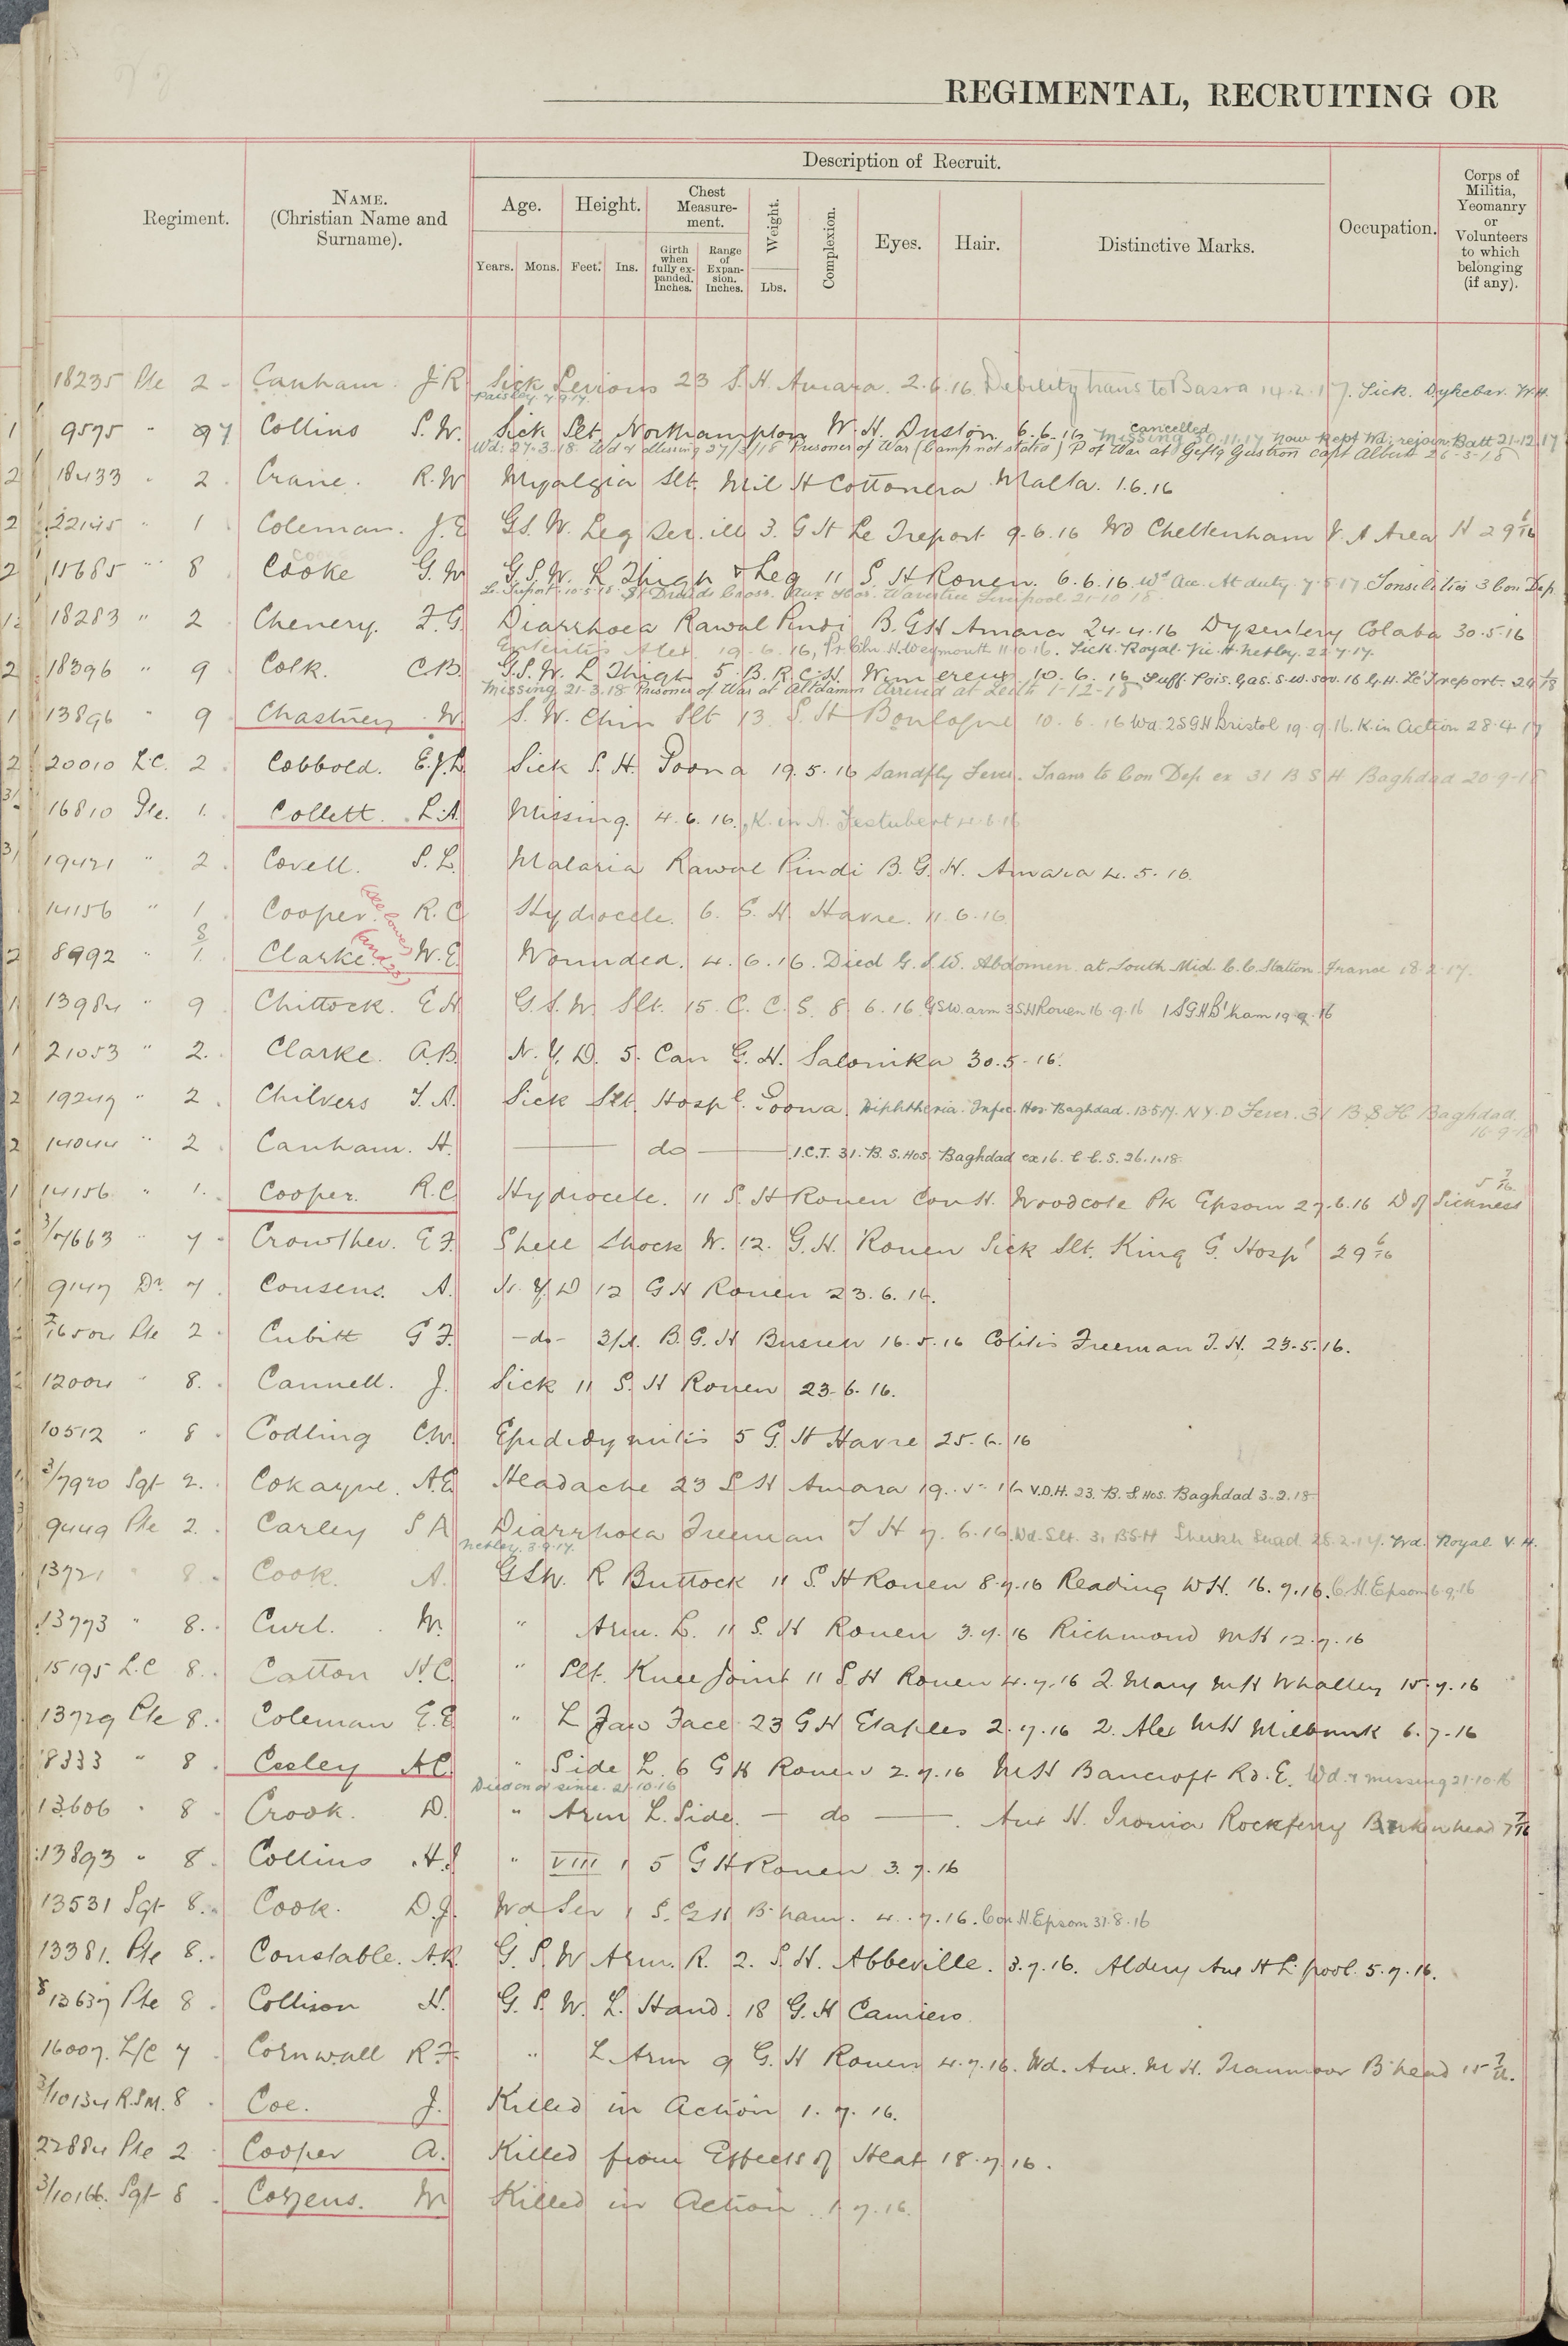 REGIMENTAL, RECRUITING OR
Description of Recruit.
Regiment.
NAME.
(Christian Name and
Surname).
Age.
Height.
Chest
Measure-
ment.
Weight.
Complexion.
Eyes.
Hair.
Distinctive Marks.
Occupation.
Corps of
Militia,
Yeomanry
or
Volunteers
to which
belonging
(if any).
Years.
Mons.
Feet.
Ins.
Girth
when
fully ex-
panded.
Inches.
Range
of
Expan-
sion.
Inches.
Lbs.
18235 Pte 2 Canham. J R Sick Serious 23 S. H. Amara. 2.6.16 Debility trans to Basra 14.2.17. Sick. Dykebar. W.H.
Paisley. 7.9.17.
1 9575 " 7 Collins S. W. Sick Slt. Northampton W. H. Duston 6-6-16 Missing 30.11.17 now rept Wd. rejoin. Batt 21-12-17
cancelled
Wd: 27-3-18. Wd & Missing 27/3/18 Prisoner of War (Camp not stated) P of War at Capt Albert 26-3-18
2 18433 " 2. Crane. R. W Myalgia Slt. Mil H Cottonera Malta. 1.6.16
2 22145 " 1 Coleman. J. E G.S. W. Leg Ser. ill 3. G H Le Treport 9.6.16 Wd Cheltenham V. A Area H 29 6/16
2 15685 " 8 Cooke G. W G. S. W. L Thigh & Leg 11 S. H Rouen. 6.6.16. Wd Acc. At duty. 7.5.17 Tonsilitis 3 Con Dep.
Le Treport. 10.5.18. Aux Hos. Wavertree Liverpool. 21-10-18
18283 " 2 Chenery. F. G. Diarrhoea Rawal Pindi B. G H Amara 24.4.16 Dysentery Colaba 30.5.16
Enteritis Alex. 19.6.16, H. Weymouth 11.10.16. Sick. Royal. Vic. H. Netley. 22.7.17.
2 18396 " 9 Colk. C. B. G.S. W. L Thigh 5. B. R. C. H. Wimereux 10.6.16 Suff. Pois. Gas. S.W. sev. 16 G. H. Le Treport.
Missing 21-3-18 Prisoner of War at Altdamm Arrived at Leith 1-12-18
1 13896 " 9 Chastney W. S. W. Chin Slt 13. S. H Boulogne 10.6.16 Wd. 2SGH Bristol 19.9.16. K. in Action 28.4.17
2 20010 L.C. 2 Cobbold. E. J. L. Sick S. H. Poona 19.5.16 Sandfly Fever. Trans to Con Dep ex 31 B S H Baghdad 20-9-18
16810 Pte. 1. Collett. L. A. Missing. 4.6.16. K. in A. Festubert 4.6.16
19421 " 2 Covell. S. L. Malaria Rawal Pindi B. G. H. Amara 4.5.16.
14156 " 1 Cooper. R. C Hydrocele. 6. S. H. Havre. 11.6.16
(See lower)
(and 23)
2 8992 " 8 1. Clarke. W. E. Wounded. 4.6.16. Died G. S. W. Abdomen at South Mid. C. C. Station France 18.2.17.
1 13984 " 9 Chittock. E. H G. S. W. Slt. 15. C. C. S. 8.6.16 GSW arm 3SH Rouen 16.9.16 1SGH B'ham 19.9.16
1 21053 " 2. Clarke. A. B. N. Y. D. 5. Can G. H. Salonika 30.5.16.
2 19249 " 2 Chilvers T. A. Sick Slt. Hospl. Poona. Diphtheria. Infec. Hos. Baghdad. 13.5.17. N Y. D Fever. 31 B S H Baghdad.
16-9-18
2 14044 " 2 Canham. H. do I.C.T. 31. B. S. Hos. Baghdad ex 16. C C. S. 26.1.18.
1 14156 " 1. Cooper. R. C Hydrocele. 11 S. H Rouen Con H. Woodcote Pk Epsom 27.6.16 D of Sickness 5 7/16.
3/7663 " 7 Crowther. E F. Shell Shock W. 12. G. H. Rouen Sick Slt. King G. Hospl 29 6/16
9147 Dr. 7 Cousens. A. N. Y. D 12 G H Rouen 23.6.16.
16504 Pte 2 Cubitt G F. -do- 3/A. B. G. H Busreh 16.5.16 Colitis Freeman T. H. 23.5.16.
12004 " 8. Cannell. J. Sick 11 S. H Rouen 23.6.16.
10512 " 8 Codling C. W. Epididymitis 5 G. H Havre 25.6.16
3/7920 Sgt 2. Cokayne. A. E. Headache 23 S H Amara 19.5.16 V.D.H. 23. B. S. Hos. Baghdad 3.2.18
9449 Pte 2. Carley S A Diarrhoea Freeman T H 7.6.16. Wd. Slt. 31 BSH Sheikh Saad 25.2.17. Wd. Royal V. H.
Netley. 3.9.17.
13721 " 8 Cook. A. GSW. R Buttock 11 S. H Rouen 8.7.16 Reading W H. 16.7.16. C. H. Epsom 6.9.16
13773 " 8. Curl. W. " Arm. L. 11 S. H Rouen 3.7.16 Richmond M H 12.7.16
15195 L. C 8. Catton H. C. " Slt. Knee Joint 11 S H Rouen 4.7.16 Q. Mary M H Whalley 15.7.16
13729 Pte 8. Coleman E. E. " L Jaw Face 23 G H Etaples 2.7.16 Q. Alex M H Millbank 6.7.16
8333 " 8 Cosley A C. " Side L. 6 G H Rouen 2.7.16 M H Bancroft Rd. E. Wd. & missing 21.10.16
Died on or since. 21.10.16
13606 " 8 Crook. D. " Arm L. Side. do Aux H. Ironia Rockferry Birkenhead 7/16
13893 " 8 Collins " VIII 1 5 G H Rouen 3.7.16
13531 Sgt 8. Cook. D. J. Wd Sev 1 S. G H B'ham. 4.7.16. Con H. Epsom 31.8.16
13381. Pte 8. Constable. A. R. G. S. W Arm. R. 2. S. H. Abbeville. 3.7.16. Aldery Aux H L'pool. 5.7.16.
13637 Pte 8 Collison H. G. S. W. L. Hand. 18 G. H Camiers
16007. L/C 7 Cornwall R F. " L Arm 9 G. H Rouen 4.7.16. Wd. Aux. M H. Tranmoor B'head 15 7/16.
3/10134 R.S.M. 8 Coe. J. Killed in Action 1.7.16.
22884 Pte 2 Cooper A. Killed from Effects of Heat 18.7.16.
3/10166. Sgt 8 Cozens. W Killed in Action. 1.7.16.